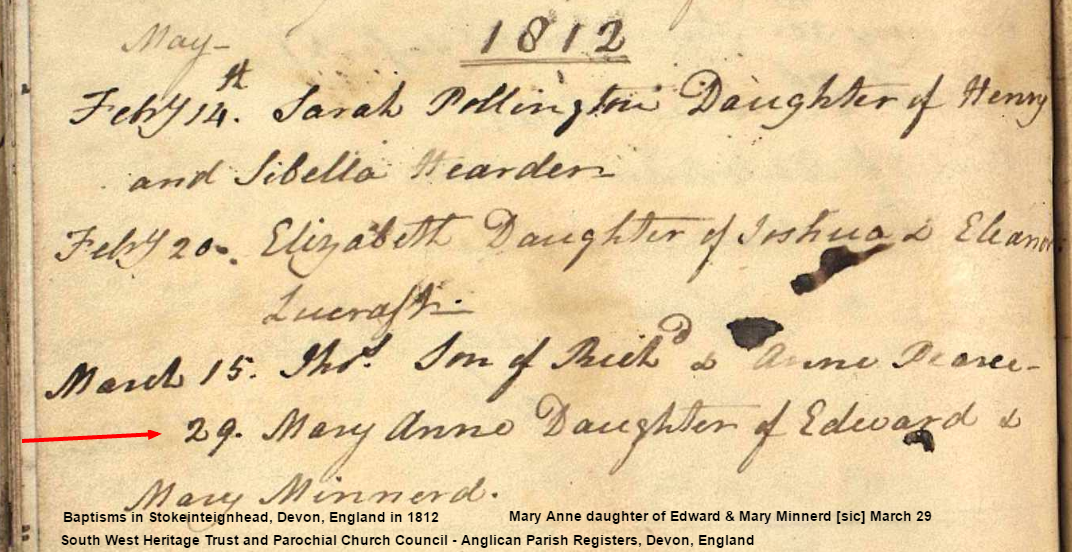 May-
1812
Feby 14th. Sarah Pollington Daughter of Henry
and Sibella Hearder
Feby 20. Elizabeth Daughter of Joshua & Eleanor
Lucraft.
March 15. Thos. Son of Richd & Anne Pearce-
29. Mary Anne Daughter of Edward &
Mary Minnerd.
Baptisms in Stokeinteignhead, Devon, England in 1812
Mary Anne daughter of Edward & Mary Minnerd [sic] March 29
South West Heritage Trust and Parochial Church Council - Anglican Parish Registers, Devon, England